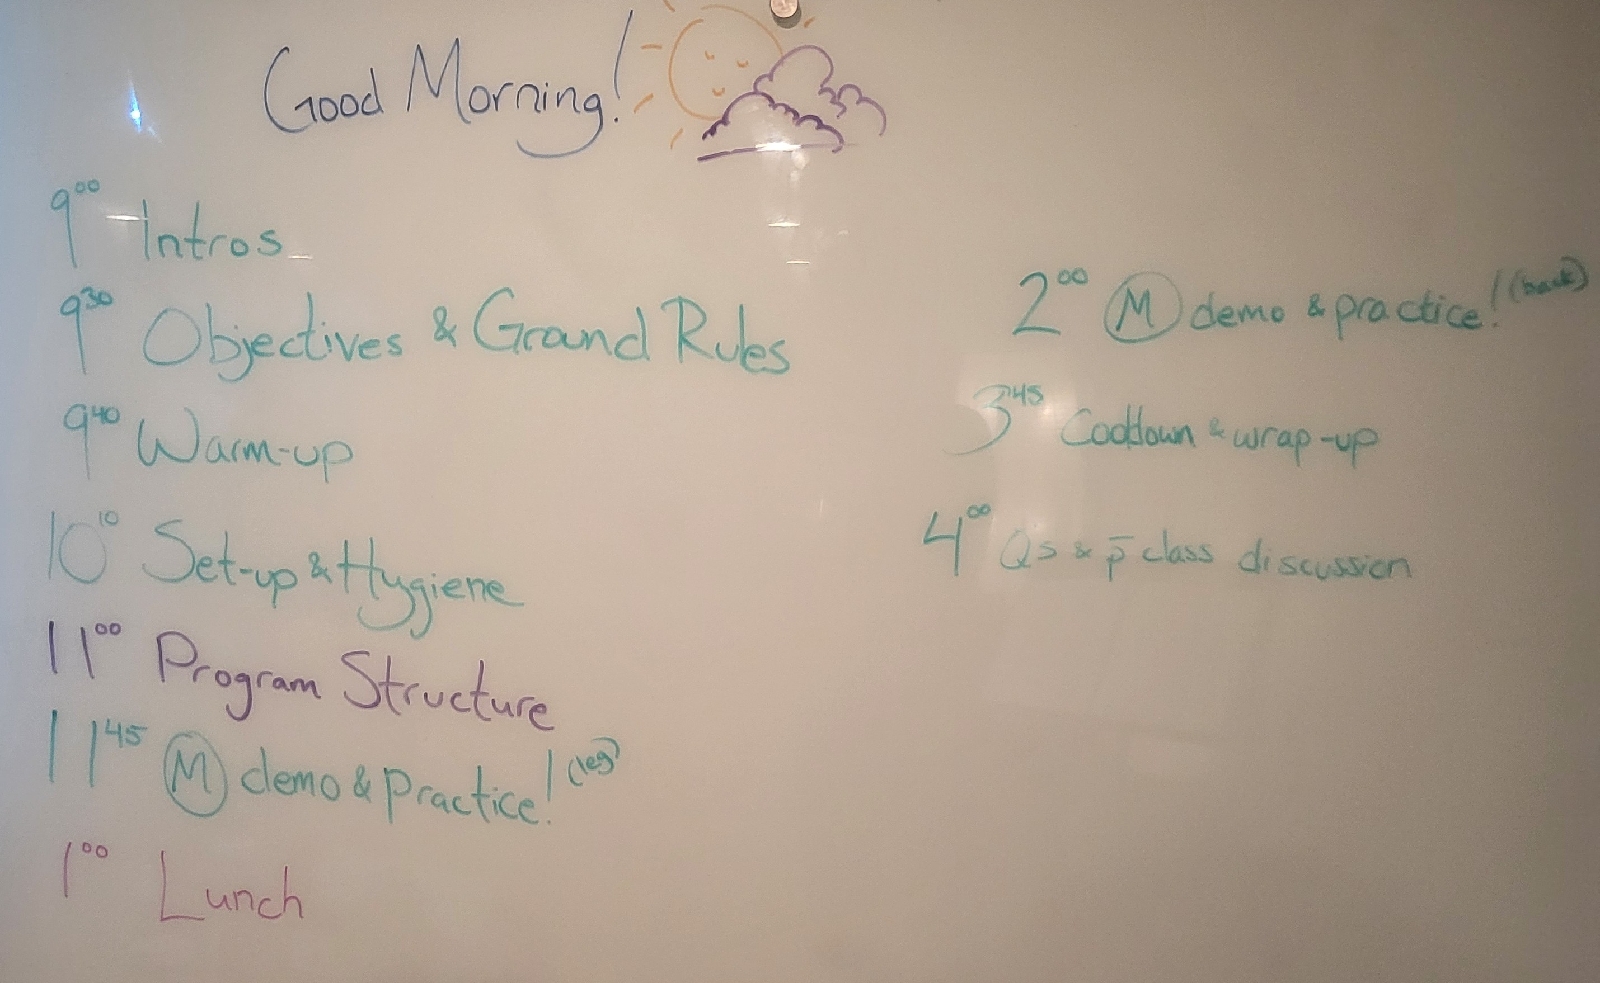 Good Morning!
9⁰⁰ Intros
9³⁰ Objectives & Ground Rules
9⁴⁰ Warm-up
10¹⁰ Set-up & Hygiene
11⁰⁰ Program Structure
11⁴⁵ Ⓜ demo & practice! (leg)
1⁰⁰ Lunch
2⁰⁰ Ⓜ demo & practice! (back)
3⁴⁵ Cooldown & wrap-up
4⁰⁰ Qs & p̄ class discussion